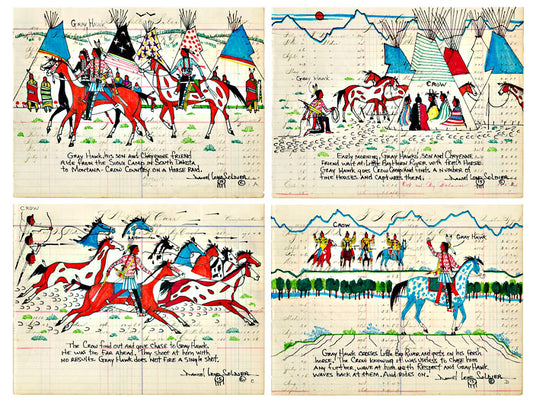 GRAY HAWK
GRAY HAWK, his son and Cheyenne friend
ride from the Sioux Camp in South Dakota
to Montana - Crow Country on a Horse Raid.
A
Gray Hawk
CROW
Early morning, Gray Hawk's son and Cheyenne
friend wait at Little Big Horn River, with fresh Horse.
Gray Hawk goes Crow Camp and finds a number of
fine Horses and captures them.
CROW
The Crow find out and give chase to Gray Hawk.
He was too far ahead. They shoot at him with
no results. Gray Hawk does not fire a single shot.
C
CROW
GRAY HAWK
Gray Hawk crosses Little Big River and gets on his fresh
horse. The Crow knowing it was useless to chase him
any further, wave at him with Respect and Gray Hawk
waves back at them. And rides on.
D